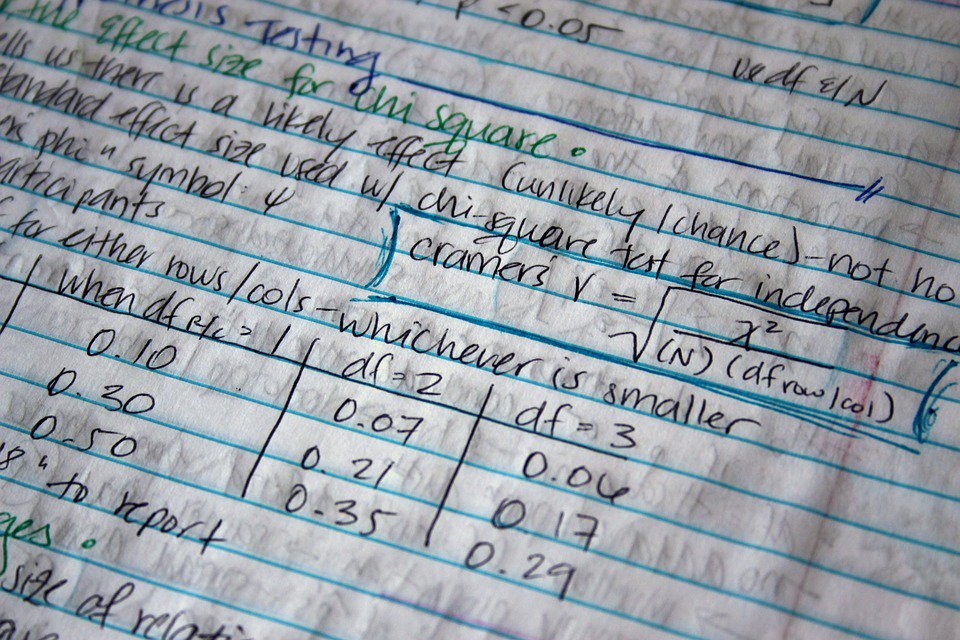 p < 0.05
Testing
use df & N
the effect size for chi square.
tells us there is a likely effect (unlikely / chance) - not ho
standard effect size used w/ chi-square test for independenc
phi " symbol: φ
cramers V = √ χ² / (N) (df row/col)
participants
for either rows/cols - whichever is smaller
when df R/C = 1 df = 2 df = 3
0.10 0.07 0.06
0.30 0.21 0.17
0.50 0.35 0.29
" to report
size of relati